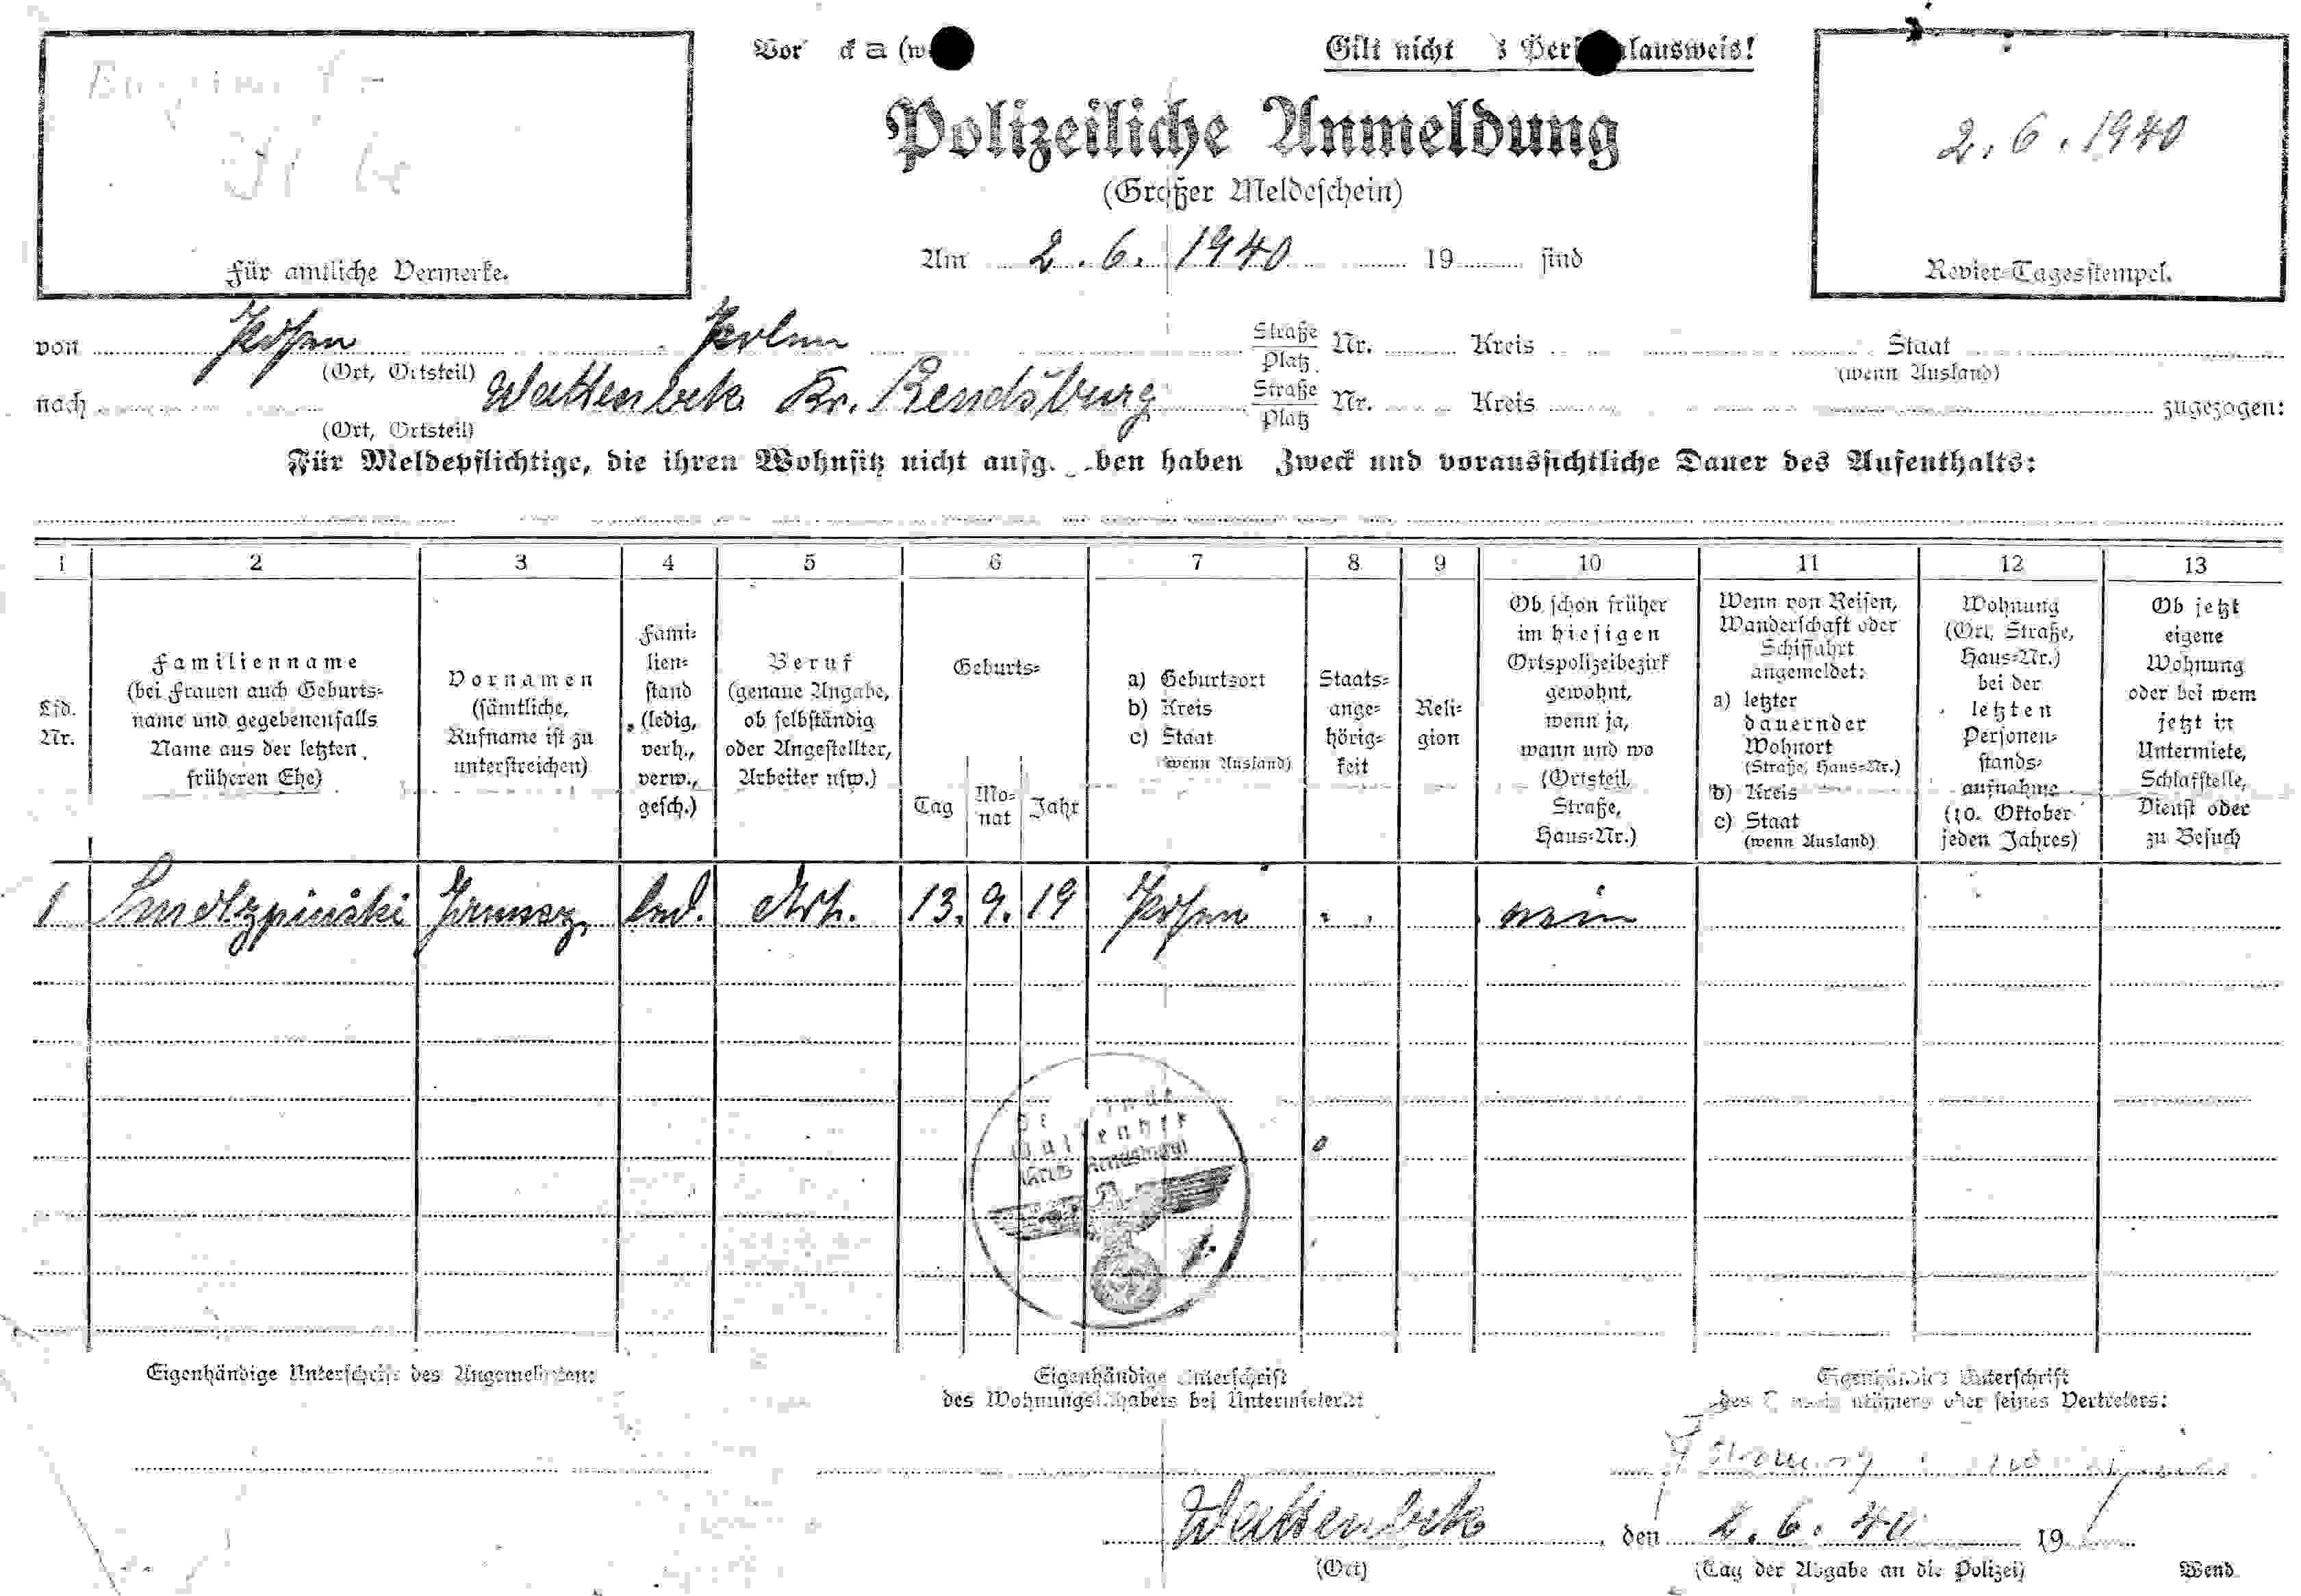 Gilt nicht
Polizeiliche Anmeldung
(Großer Meldeschein)
2.6.1940
Am 2.6.1940 19 sind
Für amtliche Vermerke.
Revier-Tagesstempel.
von Posen Polen Straße Platz Nr. Kreis Staat
(Ort, Ortsteil) (wenn Ausland)
nach Wattenbek Kr. Rendsburg Straße Platz Nr. Kreis zugezogen:
(Ort, Ortsteil)
Für Meldepflichtige, die ihren Wohnsitz nicht haben Zweck und voraussichtliche Dauer des Aufenthalts:
1 2 3 4 5 6 7 8 9 10 11 12 13
Lfd.
Nr.
Familienname
(bei Frauen auch Geburts=
name und gegebenenfalls
Name aus der letzten
früheren Ehe)
Vornamen
(sämtliche,
Rufname ist zu
unterstreichen)
Fami=
lien=
stand
(ledig,
verh.,
verw.,
gesch.)
Beruf
(genaue Angabe,
ob selbständig
oder Angestellter,
Arbeiter usw.)
Geburts=
Tag
Mo=
nat
Jahr
a) Geburtsort
b) Kreis
c) Staat
(wenn Ausland)
Staats=
ange=
hörig=
keit
Reli=
gion
Ob schon früher
im hiesigen
Ortspolizeibezirk
gewohnt,
wenn ja,
wann und wo
(Ortsteil,
Straße,
Haus=Nr.)
Wenn von Reisen,
Wanderschaft oder
Schiffahrt
angemeldet:
a) letzter
dauernder
Wohnort
(Straße, Haus=Nr.)
b) Kreis
c) Staat
(wenn Ausland)
Wohnung
(Ort, Straße,
Haus=Nr.)
bei der
letzten
Personen=
stands=
aufnahme
(10. Oktober
jeden Jahres)
Ob jetzt
eigene
Wohnung
oder bei wem
jetzt in
Untermiete,
Schlafstelle,
Dienst oder
zu Besuch
1 13. 9. 19 Posen nein
Wattenbek
Kreis Rendsburg
Eigenhändige Unterschrift des Angemeldeten:
Eigenhändige Unterschrift
des Wohnungsinhabers bei Untermietern:
Eigenhändige Unterschrift
des oder seines Vertreters:
Wattenbek, den 2.6.40 19
(Ort) (Tag der Abgabe an die Polizei) Wend